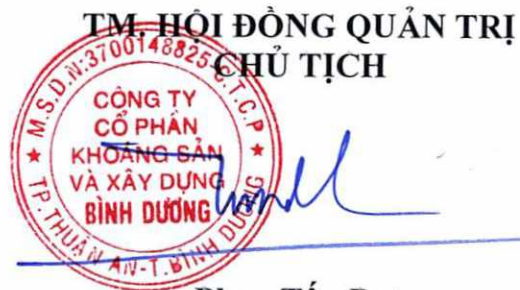 TM. HỘI ĐỒNG QUẢN TRỊ
CHỦ TỊCH
M.S.D.N:3700148825-C.T.C.P
CÔNG TY
CỔ PHẦN
KHOÁNG SẢN
VÀ XÂY DỰNG
BÌNH DƯƠNG
TP. THUẬN AN-T. BÌNH DƯƠNG